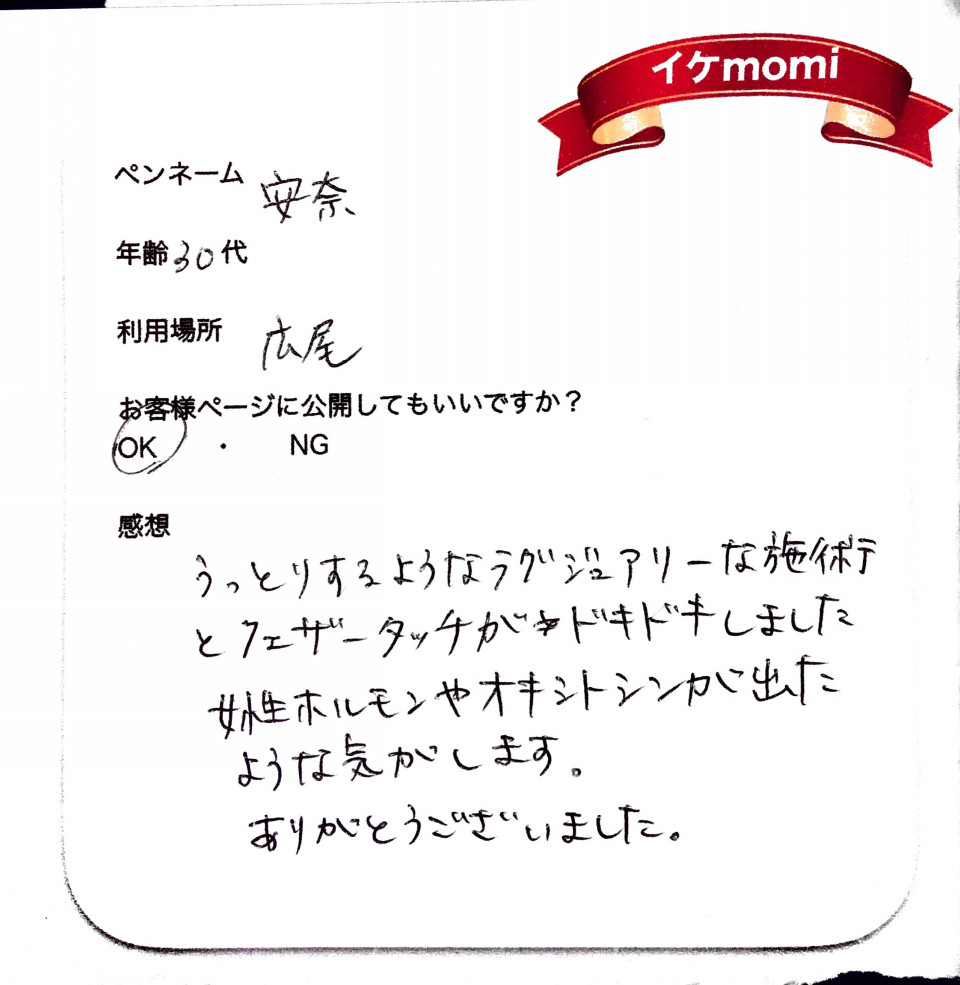 イケmomi
ペンネーム 安奈
年齢30代
利用場所 広尾
お客様ページに公開してもいいですか？
OK ・ NG
感想
うっとりするようなラグジュアリーな施術
とフェザータッチがドキドキしました
女性ホルモンやオキシトシンが出た
ような気がします。
ありがとうございました。